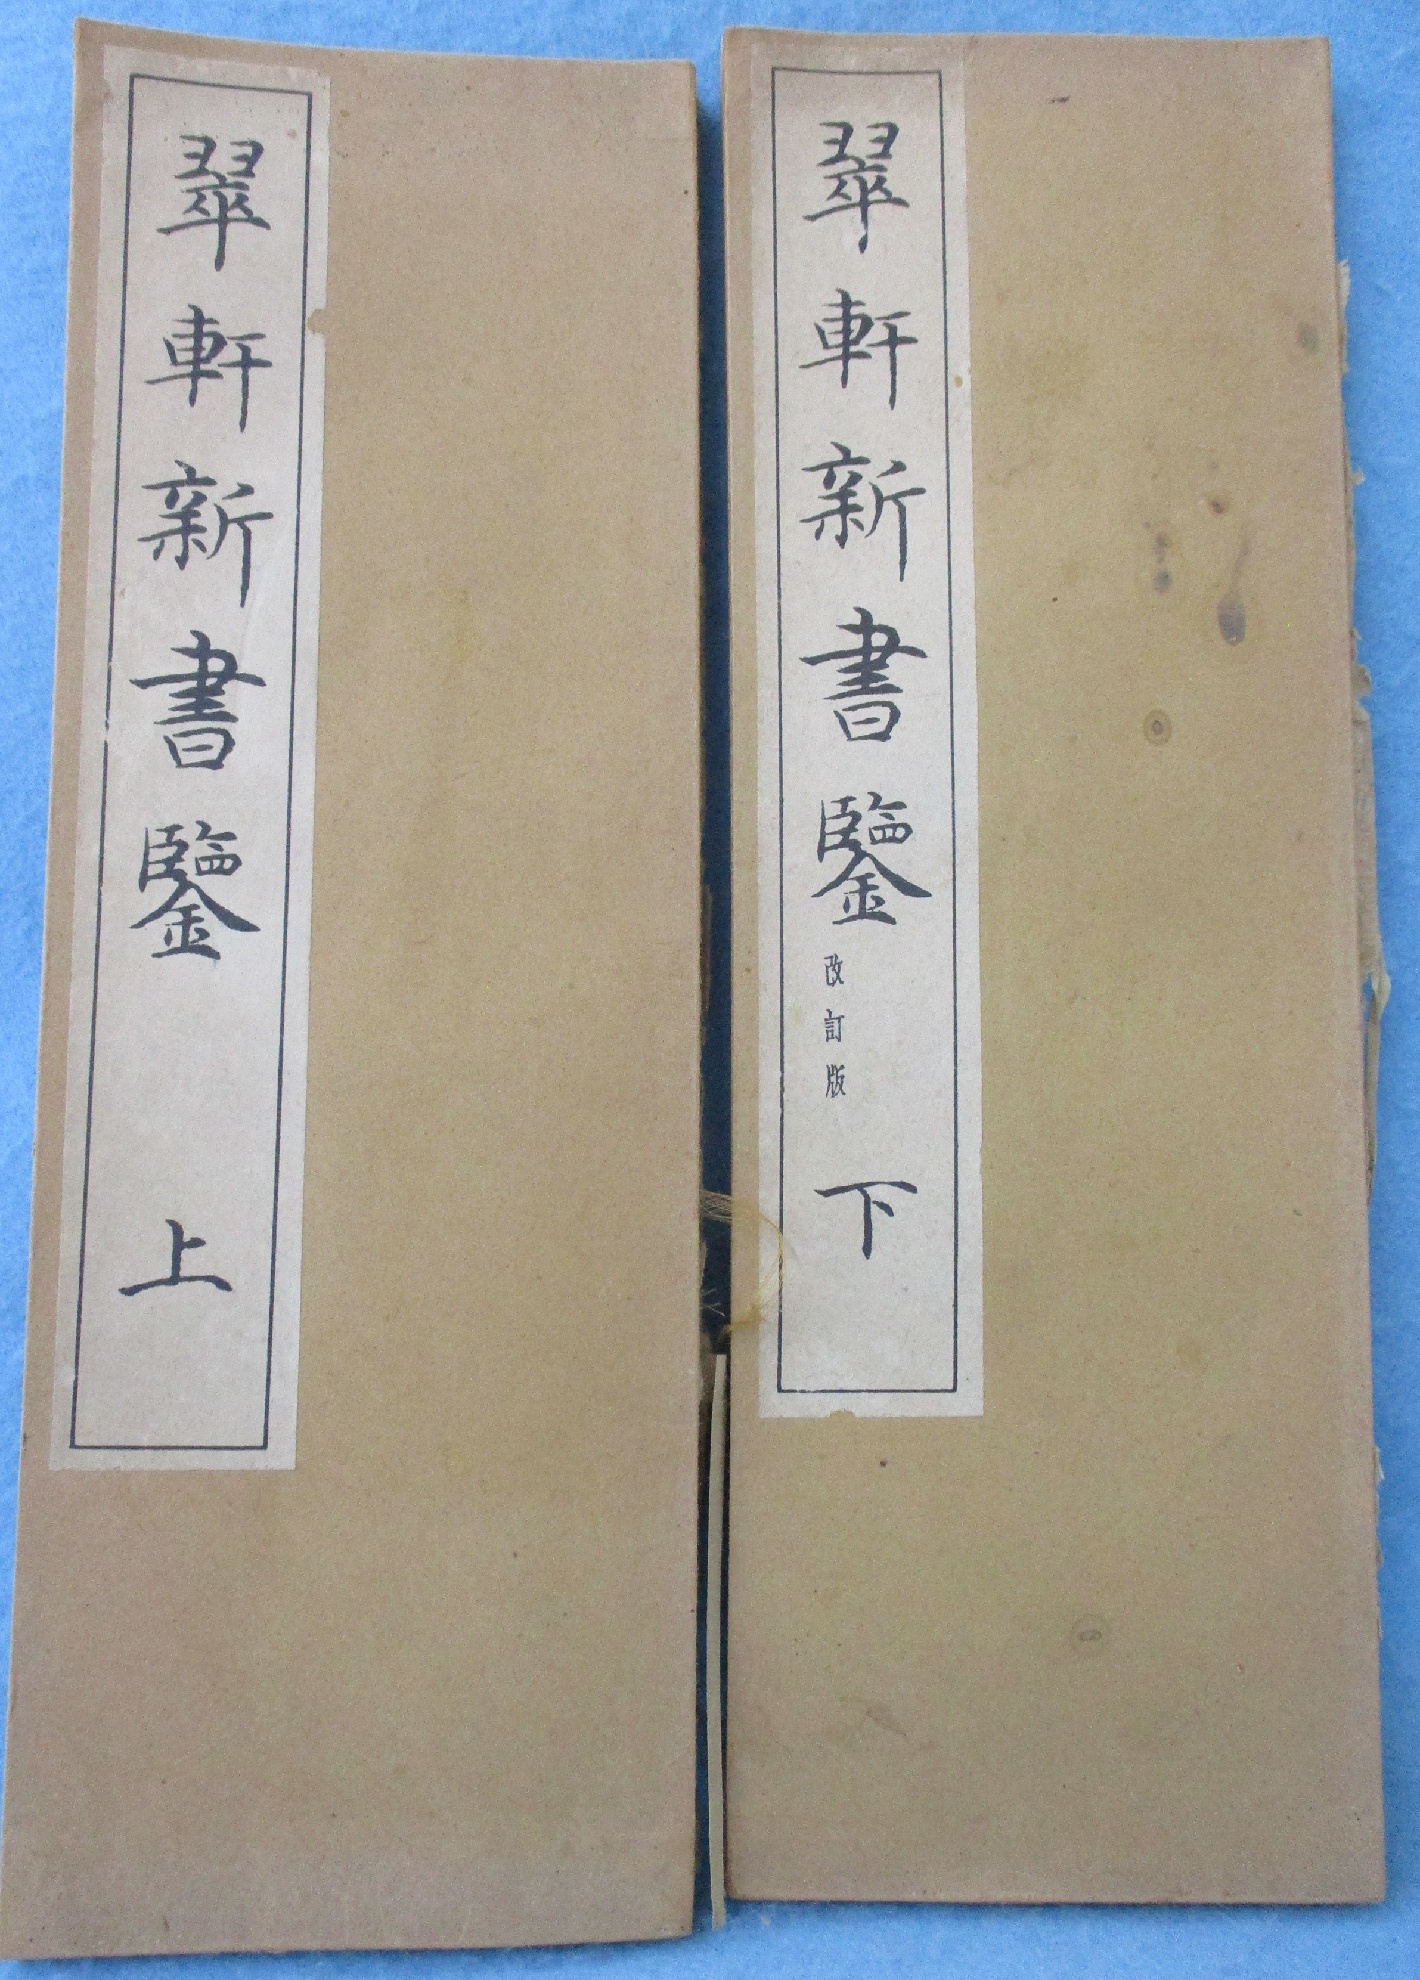 翠軒新書鑒 上
翠軒新書鑒 改訂版 下